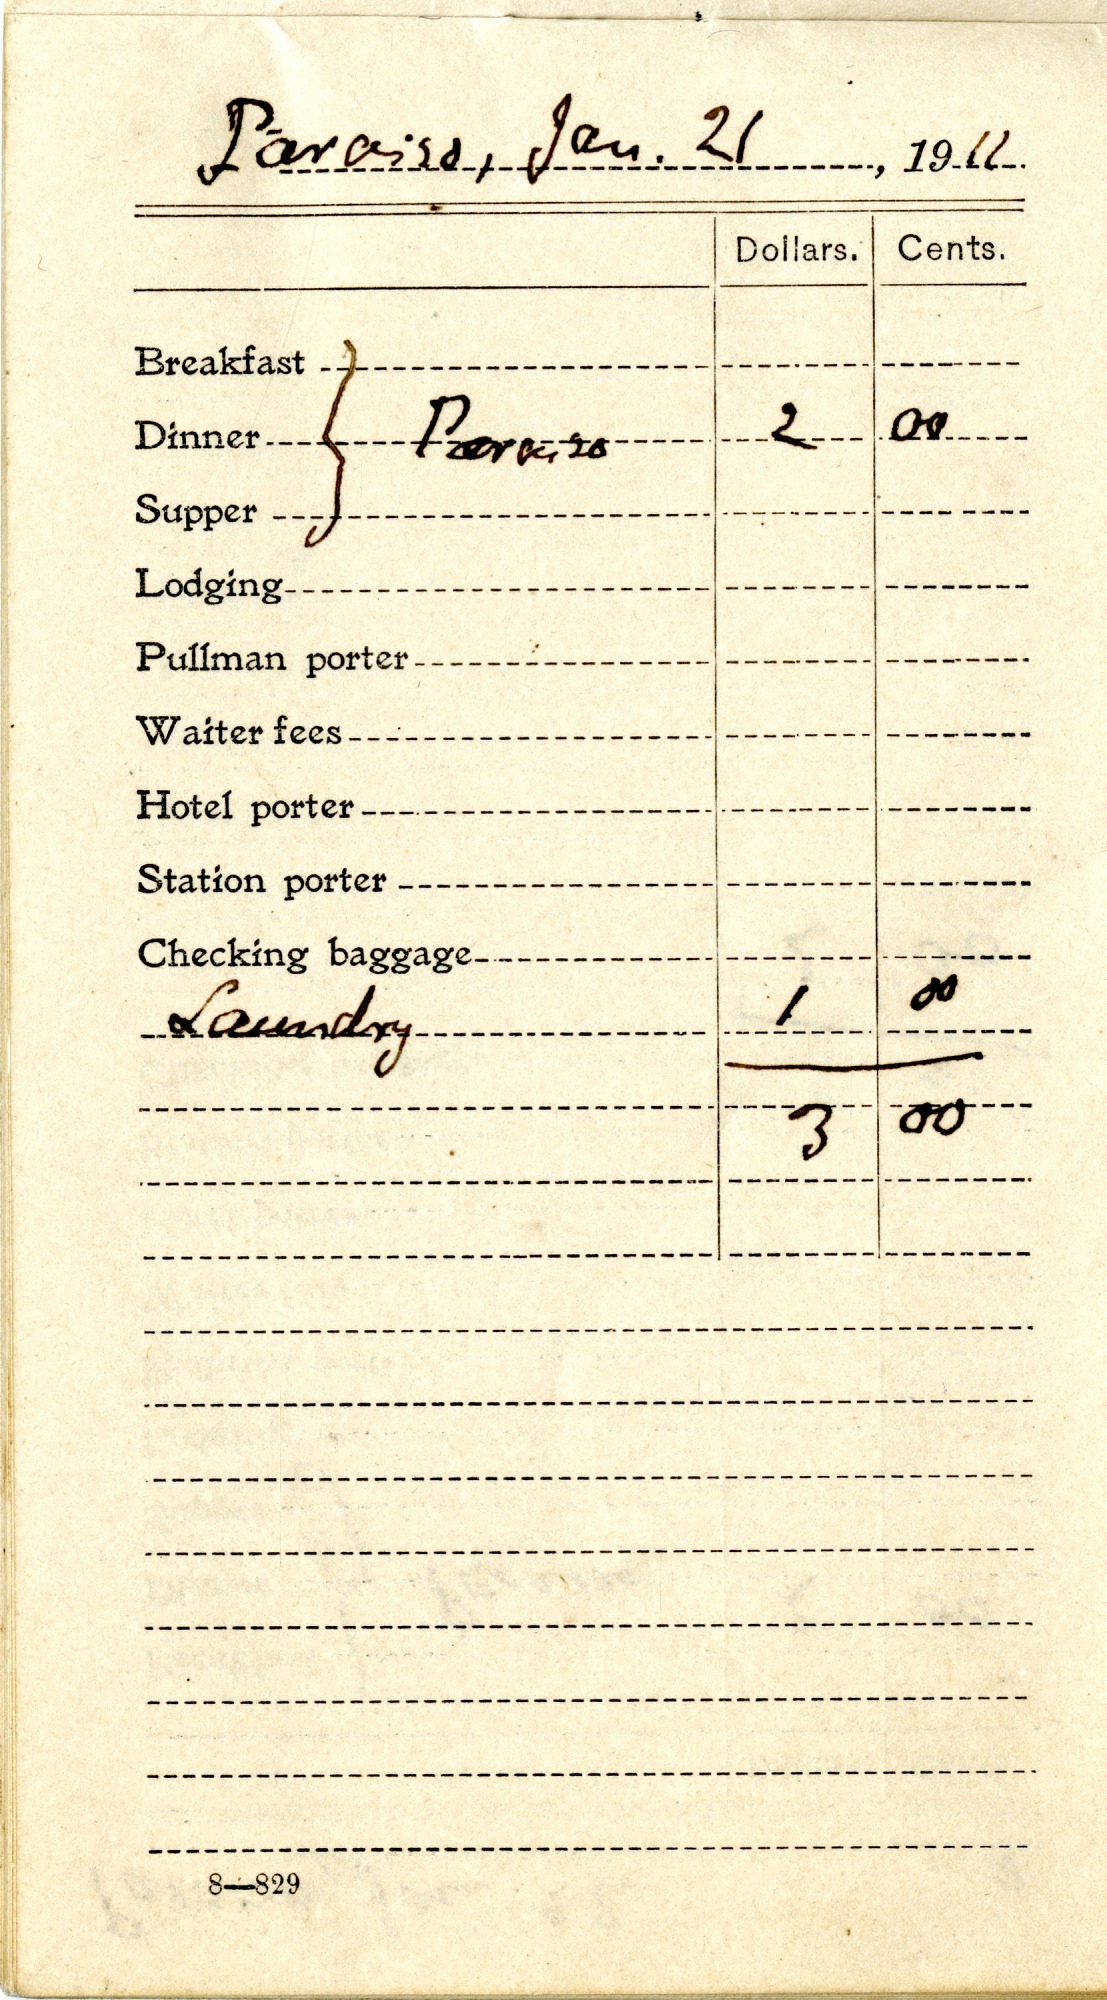 Paraiso, Jan. 21, 1911.
Dollars. Cents.
Breakfast
Dinner } Paraiso 2 00
Supper
Lodging
Pullman porter
Waiter fees
Hotel porter
Station porter
Checking baggage
Laundry 1 00
3 00
8—829